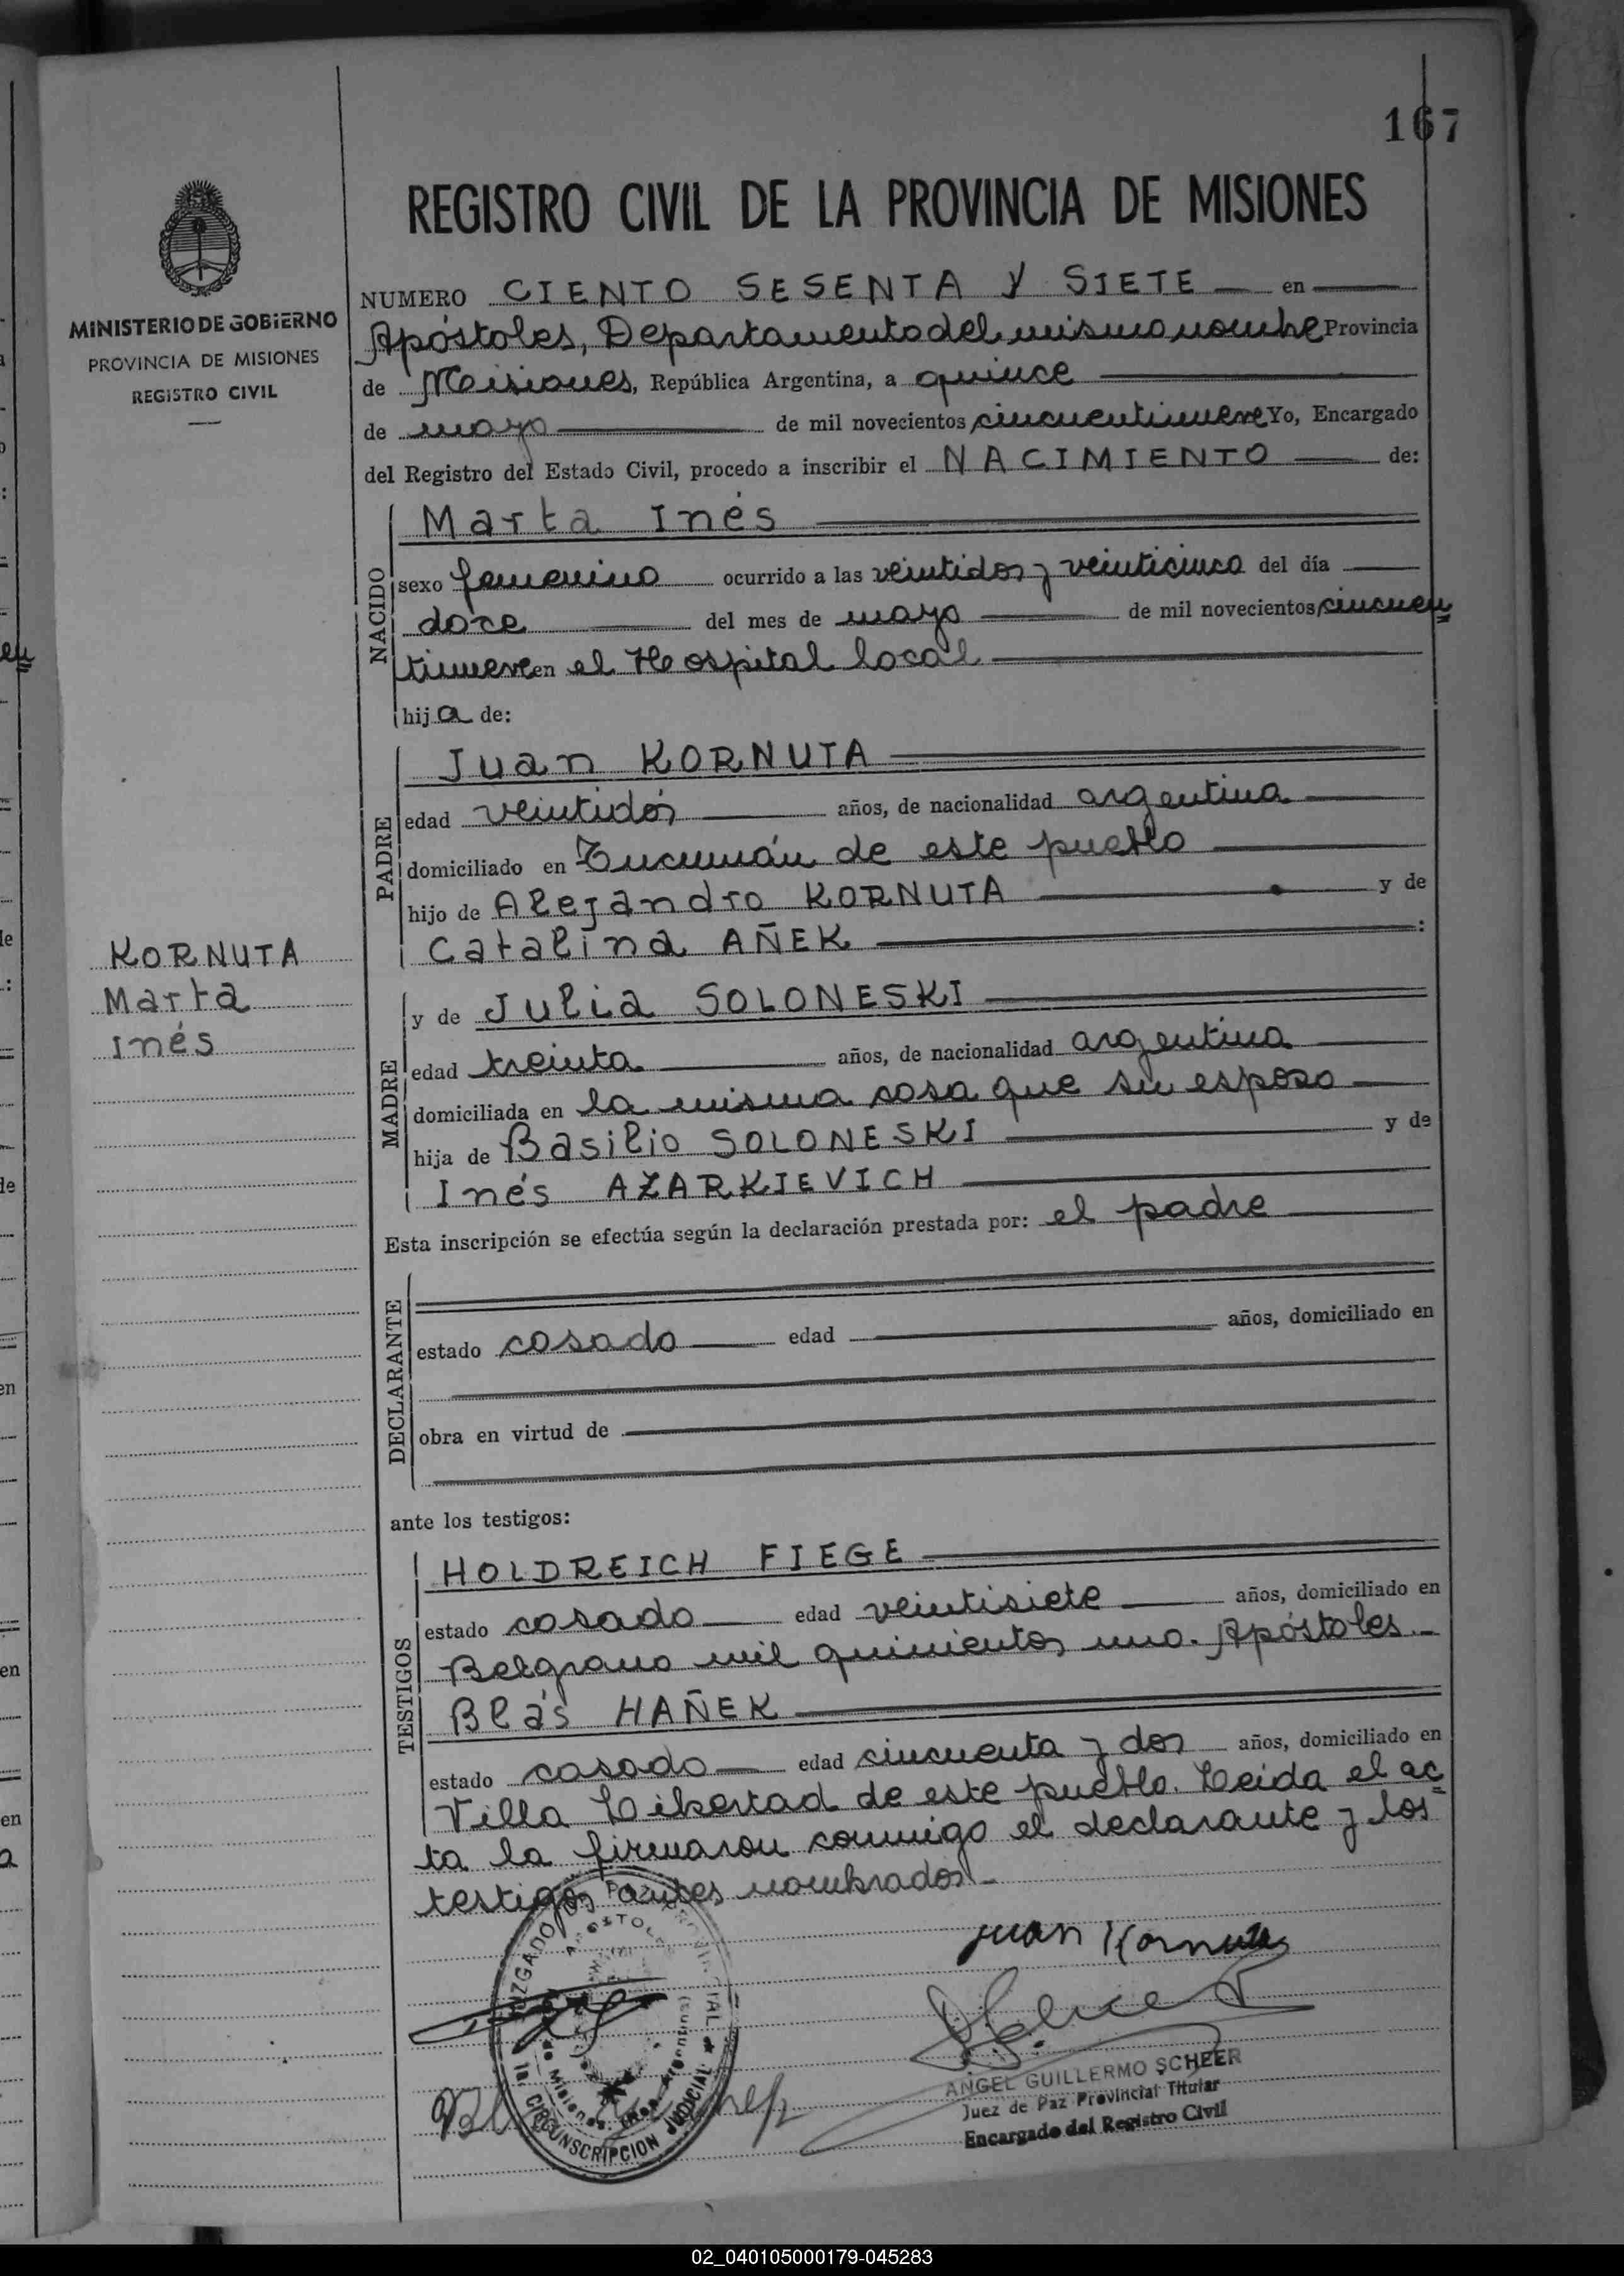 167
REGISTRO CIVIL DE LA PROVINCIA DE MISIONES
MINISTERIO DE GOBIERNO
PROVINCIA DE MISIONES
REGISTRO CIVIL
NUMERO CIENTO SESENTA Y SIETE en
Apóstoles, Departamento del mismo nombre Provincia
de Misiones, República Argentina, a quince
de mayo de mil novecientos cincuentinueve Yo, Encargado
del Registro del Estado Civil, procedo a inscribir el NACIMIENTO de:
NACIDO
Marta Inés
sexo femenino ocurrido a las veintidos y veinticinco del día
doce del mes de mayo de mil novecientos cincuen
tinueve en el Hospital local
hija de:
PADRE
Juan KORNUTA
edad veintidós años, de nacionalidad argentina
domiciliado en Tucumán de este pueblo
hijo de Alejandro KORNUTA y de
Catalina AÑEK :
KORNUTA
Marta
Inés
MADRE
y de Julia SOLONESKI
edad treinta años, de nacionalidad argentina
domiciliada en la misma casa que su esposo
hija de Basilio SOLONESKI y de
Inés AZARKIEVICH
Esta inscripción se efectúa según la declaración prestada por: el padre
DECLARANTE
estado casado edad años, domiciliado en
obra en virtud de
ante los testigos:
TESTIGOS
HOLDREICH FIEGE
estado casado edad veintisiete años, domiciliado en
Belgrano mil quinientos uno. Apóstoles.-
Blás HAÑEK
estado casado edad cincuenta y dos años, domiciliado en
Villa Libertad de este pueblo. Leida el ac
ta la firmaron conmigo el declarante y los
testigos antes nombrados.-
Juan Kornuta
JUZGADO DE PAZ PROVINCIAL
1a. CIRCUNSCRIPCION JUDICIAL
ANGEL GUILLERMO SCHEER
Juez de Paz Provincial Titular
Encargado del Registro Civil
02_040105000179-045283